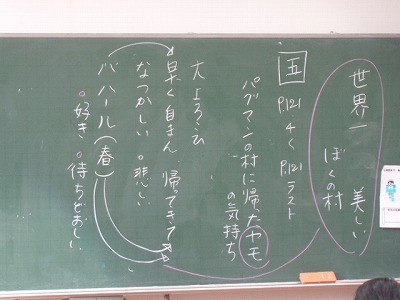 世界一 美しい
ぼくの村
五 P.121 4く P.121ラスト
パグマンの村に帰ったヤモ
の気持ち
大よろこび
早く自まん 帰ってきて
なつかしい 。悲しい
バハール(春)
。好き 。待ちどおしい